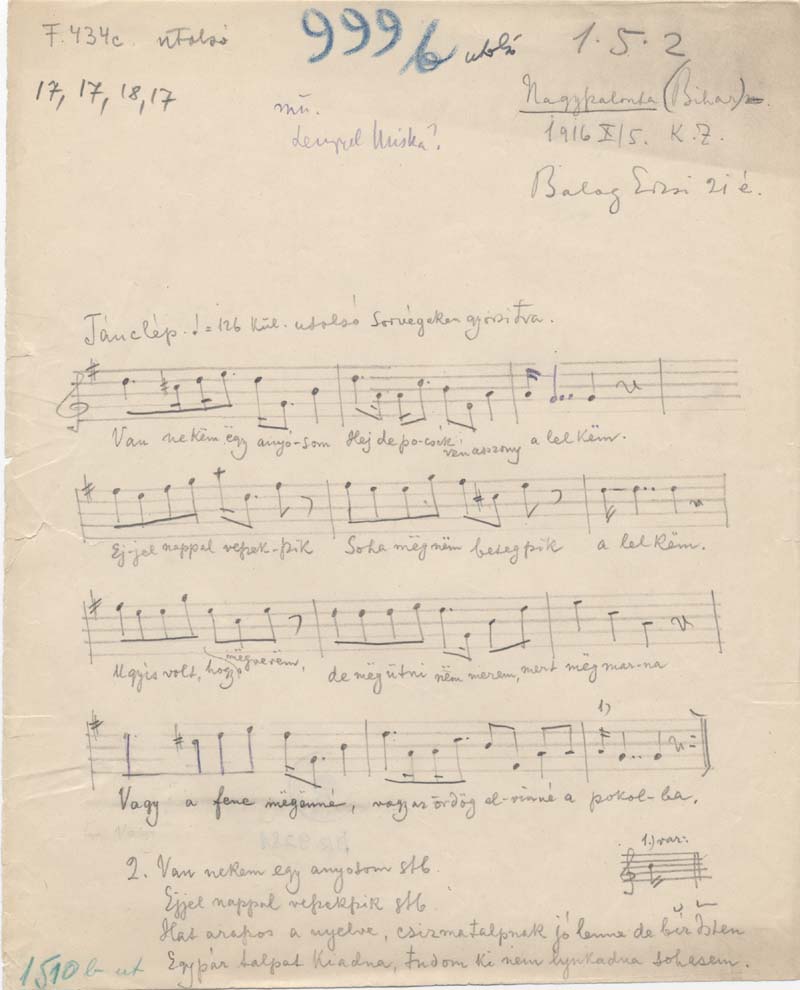 F.434c. utolsó 999/b utolsó 1.5.2
17, 17, 18, 17
mű.
Lengyel Miska?
Nagyszalonta (Bihar).
1916 X/5. K.Z.
Balog Erzsi 21 é.
Tánclép. ♩=126 Kül. utolsó Sorvégeken gyorsítva.
Van nekëm ëgy anyó-som Hej de po-csék vén asszony a lelkëm.
Ej-jel nappal veszek-szik Soha mëg nëm betegszik a lelkëm.
Ugyis volt, hogy mëgverëm, de mëg ütni nëm merem, mert mëg mar-na
1)
Vagy a fene mëgënné, vagy az ördög el-vinné a pokol-ba.
1.) var.:
2. Van nekem egy anyosom stb.
Ejjel nappal veszekszik stb.
Hat araszos a nyelve, csizmatalpnak jó lenne de bíz Isten
Egypár talpat kiadna, tudom ki nem lyukadna sohasem.
1510 b ut